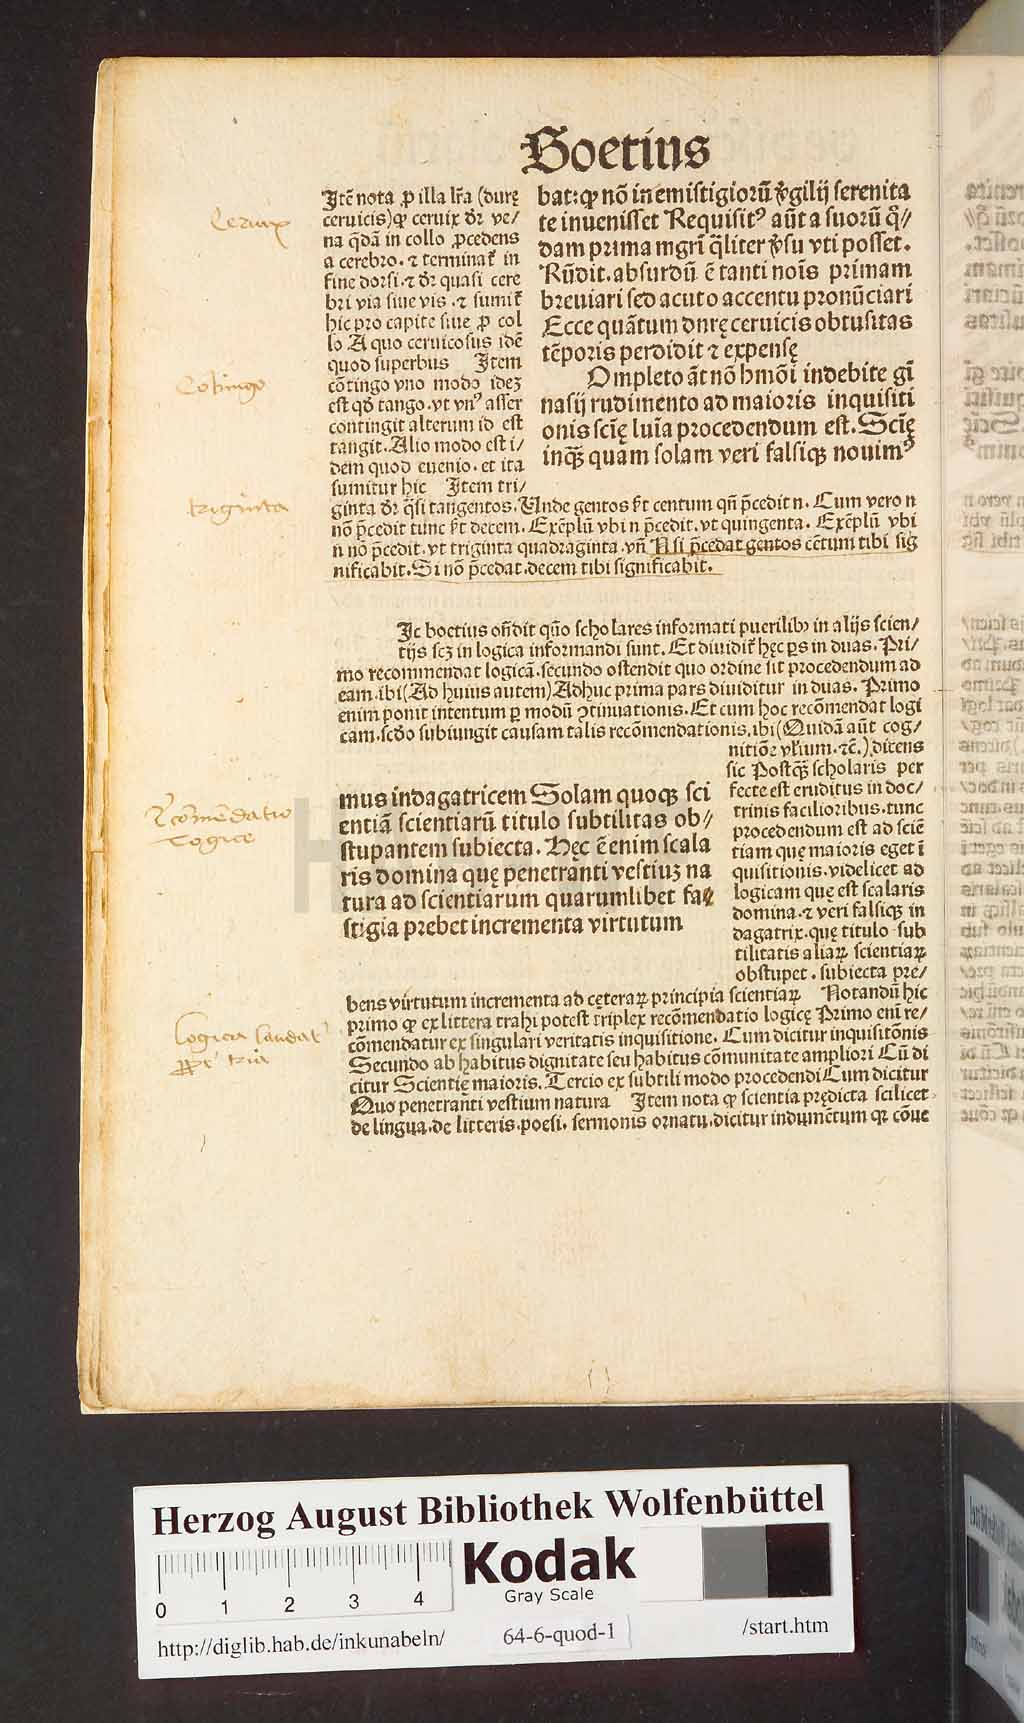 Boetius
Itē nota ꝓ illa lr̄a (durę
ceruicis)ꝙ ceruix dr̄ ve/
na q̄dā in collo ꝓcedens
a cerebro. ⁊ terminat̄ in
fine dorsi.⁊ dr̄ quasi cere
bri via siue vis .⁊ sumit̄
hic pro capite siue ꝓ col
lo A quo ceruicosus idē
quod superbus Item
cōtingo vno modo ideꝫ
est qd̄ tango.vt vnꝰ asser
contingit alterum id est
tangit.Alio modo est i/
dem quod euenio.et ita
sumitur hic Item tri/
ginta dr̄ q̄si tangentos.Unde gentos st̄ centum qn̄ p̄cedit n. Cum vero n
nō p̄cedit tunc st̄ decem. Exēplū vbi n p̄cedit.vt quingenta. Exēplū vbi
n nō p̄cedit.vt triginta quadraginta.vn̄ N si p̄cedat gentos cētum tibi sig
nificabit.Si nō p̄cedat.decem tibi significabit.
bat:ꝙ nō in emistigiorū v̄gilij serenita
te inuenisset Requisitꝰ aūt a suorū q̄//
dam prima mgr̄i q̄liter v̄su vti posset.
Rn̄dit.absurdū ē tanti noīs primam
breuiari sed acuto accentu pronūciari
Ecce quātum dnrę ceruicis obtusitas
tēporis perdidit ⁊ expensę
Ompleto āt nō hmōi indebite gī
nasij rudimento ad maioris inquisiti
onis scię luīa procedendum est.Scię
inqꝫ quam solam veri falsiqꝫ nouimꝰ
Ic boetius on̄dit quō scholares informati puerilibꝰ in alijs scien/
tijs scꝫ in logica informandi sunt. Et diuidit̄ hęc ps̄ in duas. Pri/
mo recommendat logicā.secundo ostendit quo ordine sit procedendum ad
eam.ibi(Ad huius autem)Adhuc prima pars diuiditur in duas. Primo
enim ponit intentum ꝑ modū ꝯtinuationis.Et cum hoc recōmendat logi
cam.scdo subiungit causam talis recōmendationis.ibi(Quidā aūt cog/
nitiōꝫ vtium.⁊c̄.)dicens
sic Postqꝫ scholaris per
fecte est eruditus in doc/
trinis facilioribus.tunc
procedendum est ad sciē
tiam quę maioris eget ī
quisitionis.videlicet ad
logicam quę est scalaris
domina.⁊ veri falsiqꝫ in
dagatrix.quę titulo sub
tilitatis aliaꝝ scientiaꝝ
obstupet.subiecta pre/
mus indagatricem Solam quoqꝫ sci
entiā scientiarū titulo subtilitas ob//
stupantem subiecta. Hęc ē enim scala
ris domina quę penetranti vestiuꝫ na
tura ad scientiarum quarumlibet fa⁊
stigia prebet incrementa virtutum
bens virtutum incrementa ad cęteraꝝ principia scientiaꝝ Notandū hic
primo ꝙ ex littera trahi potest triplex recōmendatio logicę Primo enī re/
cōmendatur ex singulari veritatis inquisitione. Cum dicitur inquisitōnis
Secundo ab habitus dignitate seu habitus cōmunitate ampliori Cū di
citur Scientię maioris. Tercio ex subtili modo procedendi Cum dicitur
Quo penetranti vestium natura Item nota ꝙ scientia prędicta scilicet
de lingua.de litteris.poesi. sermonis ornatu.dicitur indumētum qꝛ cōue
Ceruix
Cotingo
triginta
Rēcōmēdatio
Logice
Logica laudatʳ
HAB
Herzog August Bibliothek Wolfenbüttel
0 1 2 3 4
Kodak
Gray Scale
http://diglib.hab.de/inkunabeln/
64-6-quod-1
/start.htm